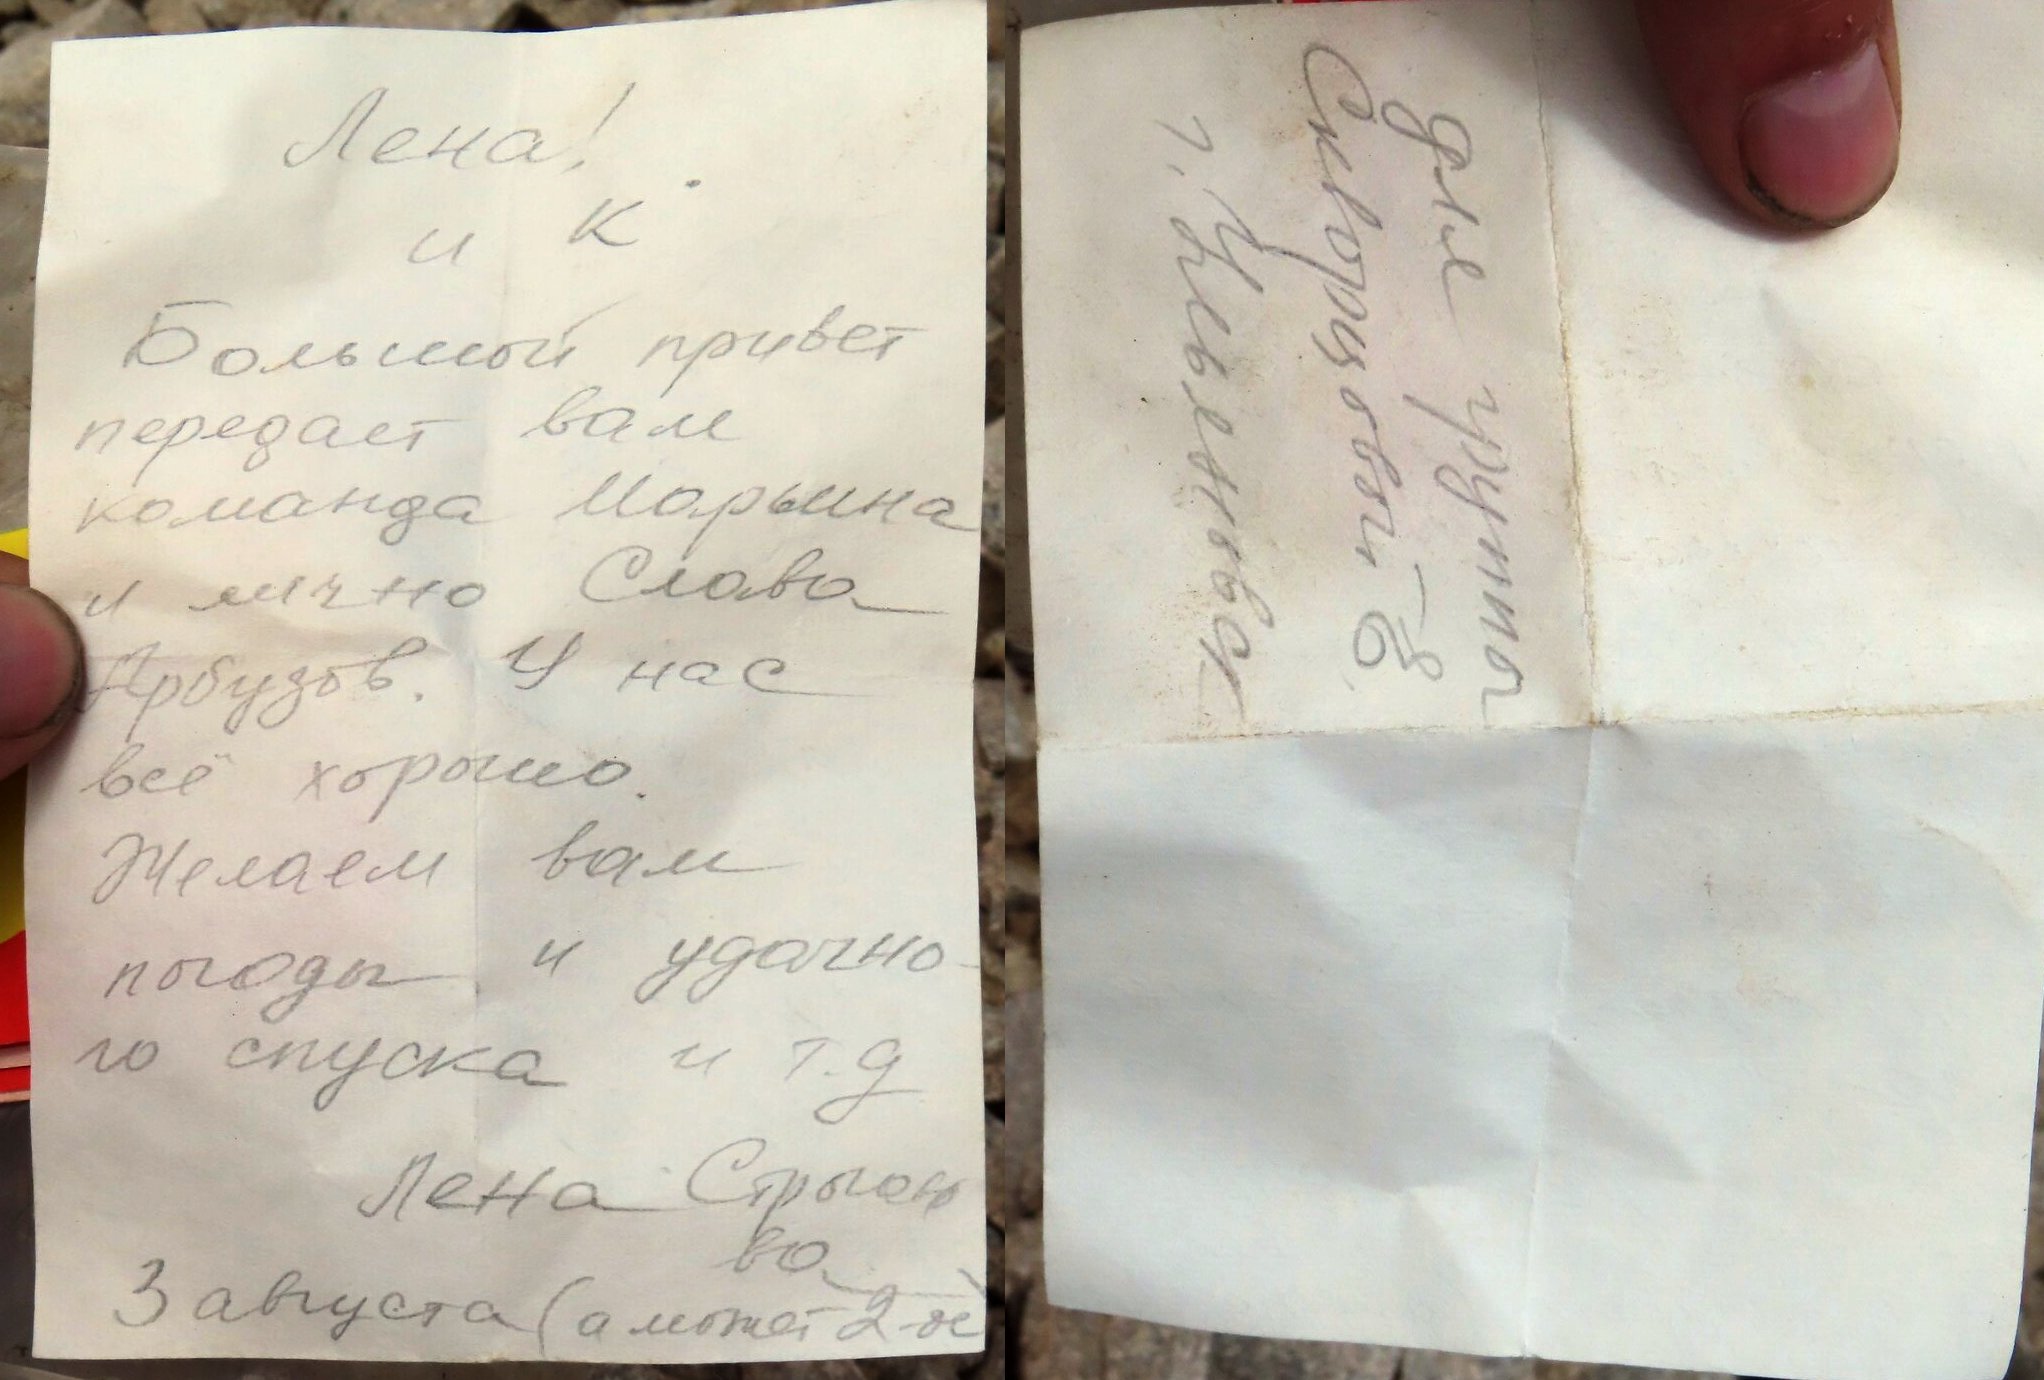 Лена!
и К°
Большой привет
передает вам
команда Марьина
и лично Слава
Арбузов. У нас
всё хорошо.
Желаем вам
погоды и удачно-
го спуска и т.д
Лена Стрыгин
ва
3 августа (а может 2-ое)
для группы
Скворцовой Е.
г. Куйбышев